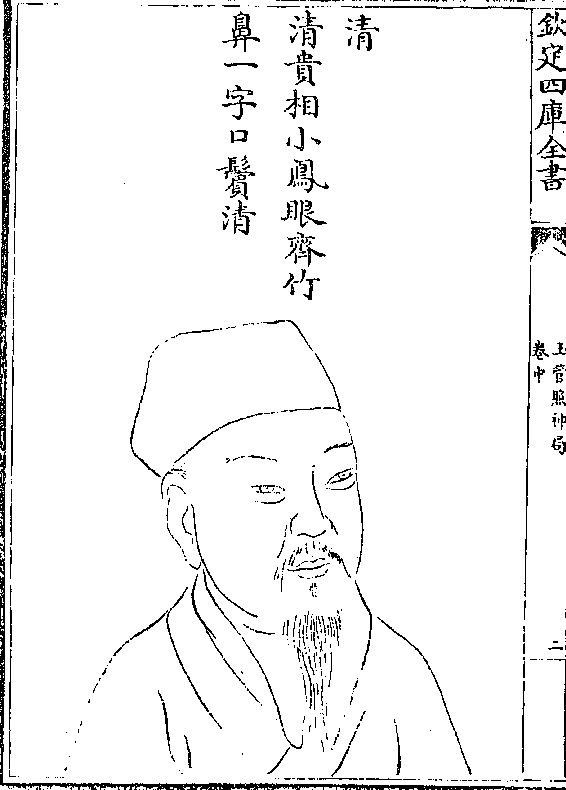 欽定四庫全書
玉管照神局
卷中
二
清
清貴相小鳳眼齊竹
鼻一字口鬢清